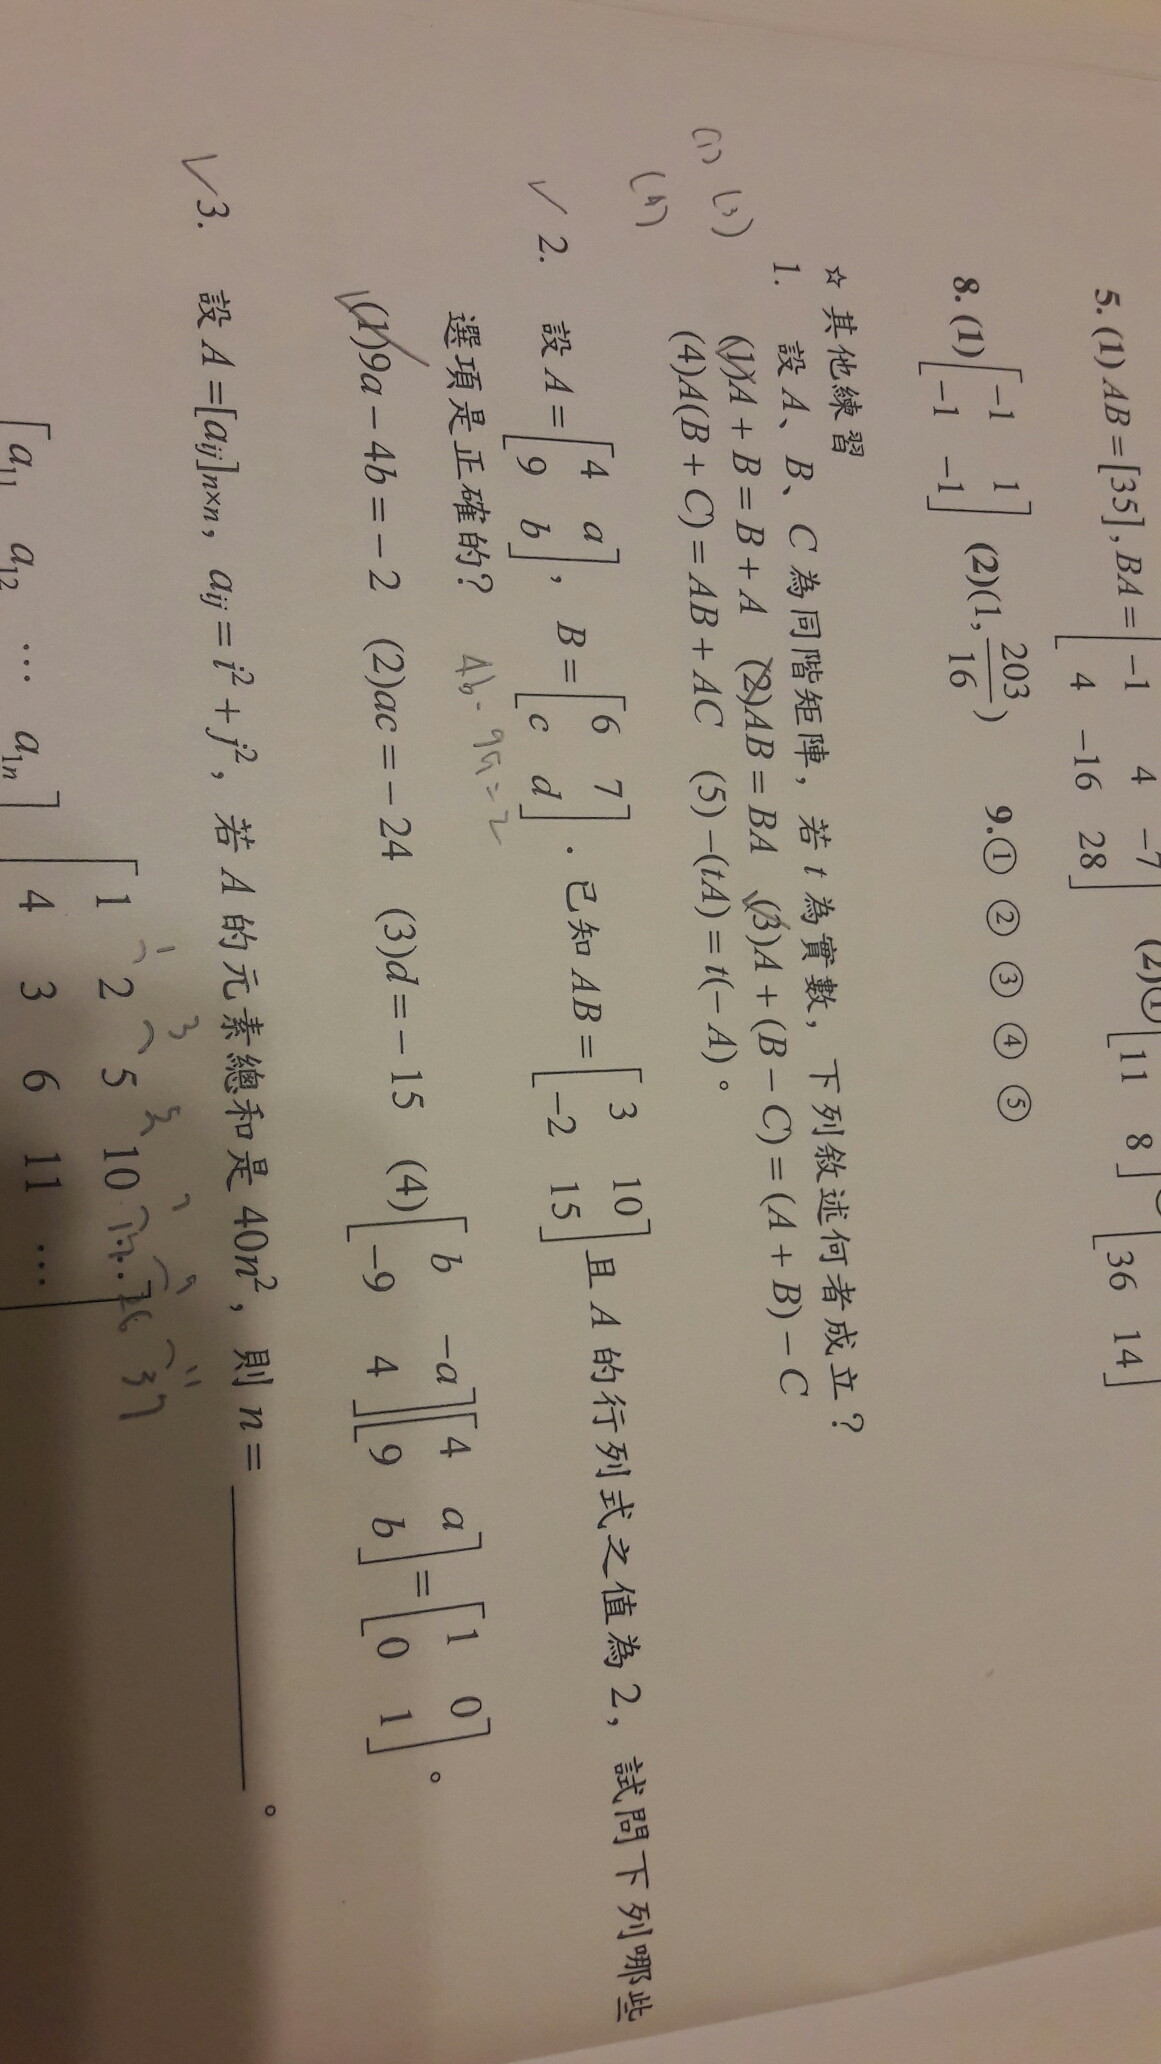 5. (1) AB = [35], BA = [-1 4 -7
4 -16 28] (2)① [11 8] [36 14]
8. (1) [-1 1
-1 -1] (2)(1, 203/16) 9.① ② ③ ④ ⑤
☆ 其他練習
(1) (3)
(4)
1. 設 A、B、C 為同階矩陣，若 t 為實數，下列敘述何者成立？
(1)A + B = B + A (2)AB = BA (3)A + (B − C) = (A + B) − C
(4)A(B + C) = AB + AC (5) −(tA) = t(− A)。
✓ 2. 設 A = [4 a
9 b]，B = [6 7
c d]．已知 AB = [3 10
−2 15] 且 A 的行列式之值為 2，試問下列哪些
選項是正確的? 4b - 9a = 2
(1)9a − 4b = − 2 (2)ac = − 24 (3)d = − 15 (4)[b −a
−9 4][4 a
9 b] = [1 0
0 1]。
✓ 3. 設 A = [aij]n×n，aij = i² + j²，若 A 的元素總和是 40n²，則 n = ________。
1 3 5 7 9 11
[a11 a12 … a1n] [1 2 5 10 … 26 37
4 3 6 11 …